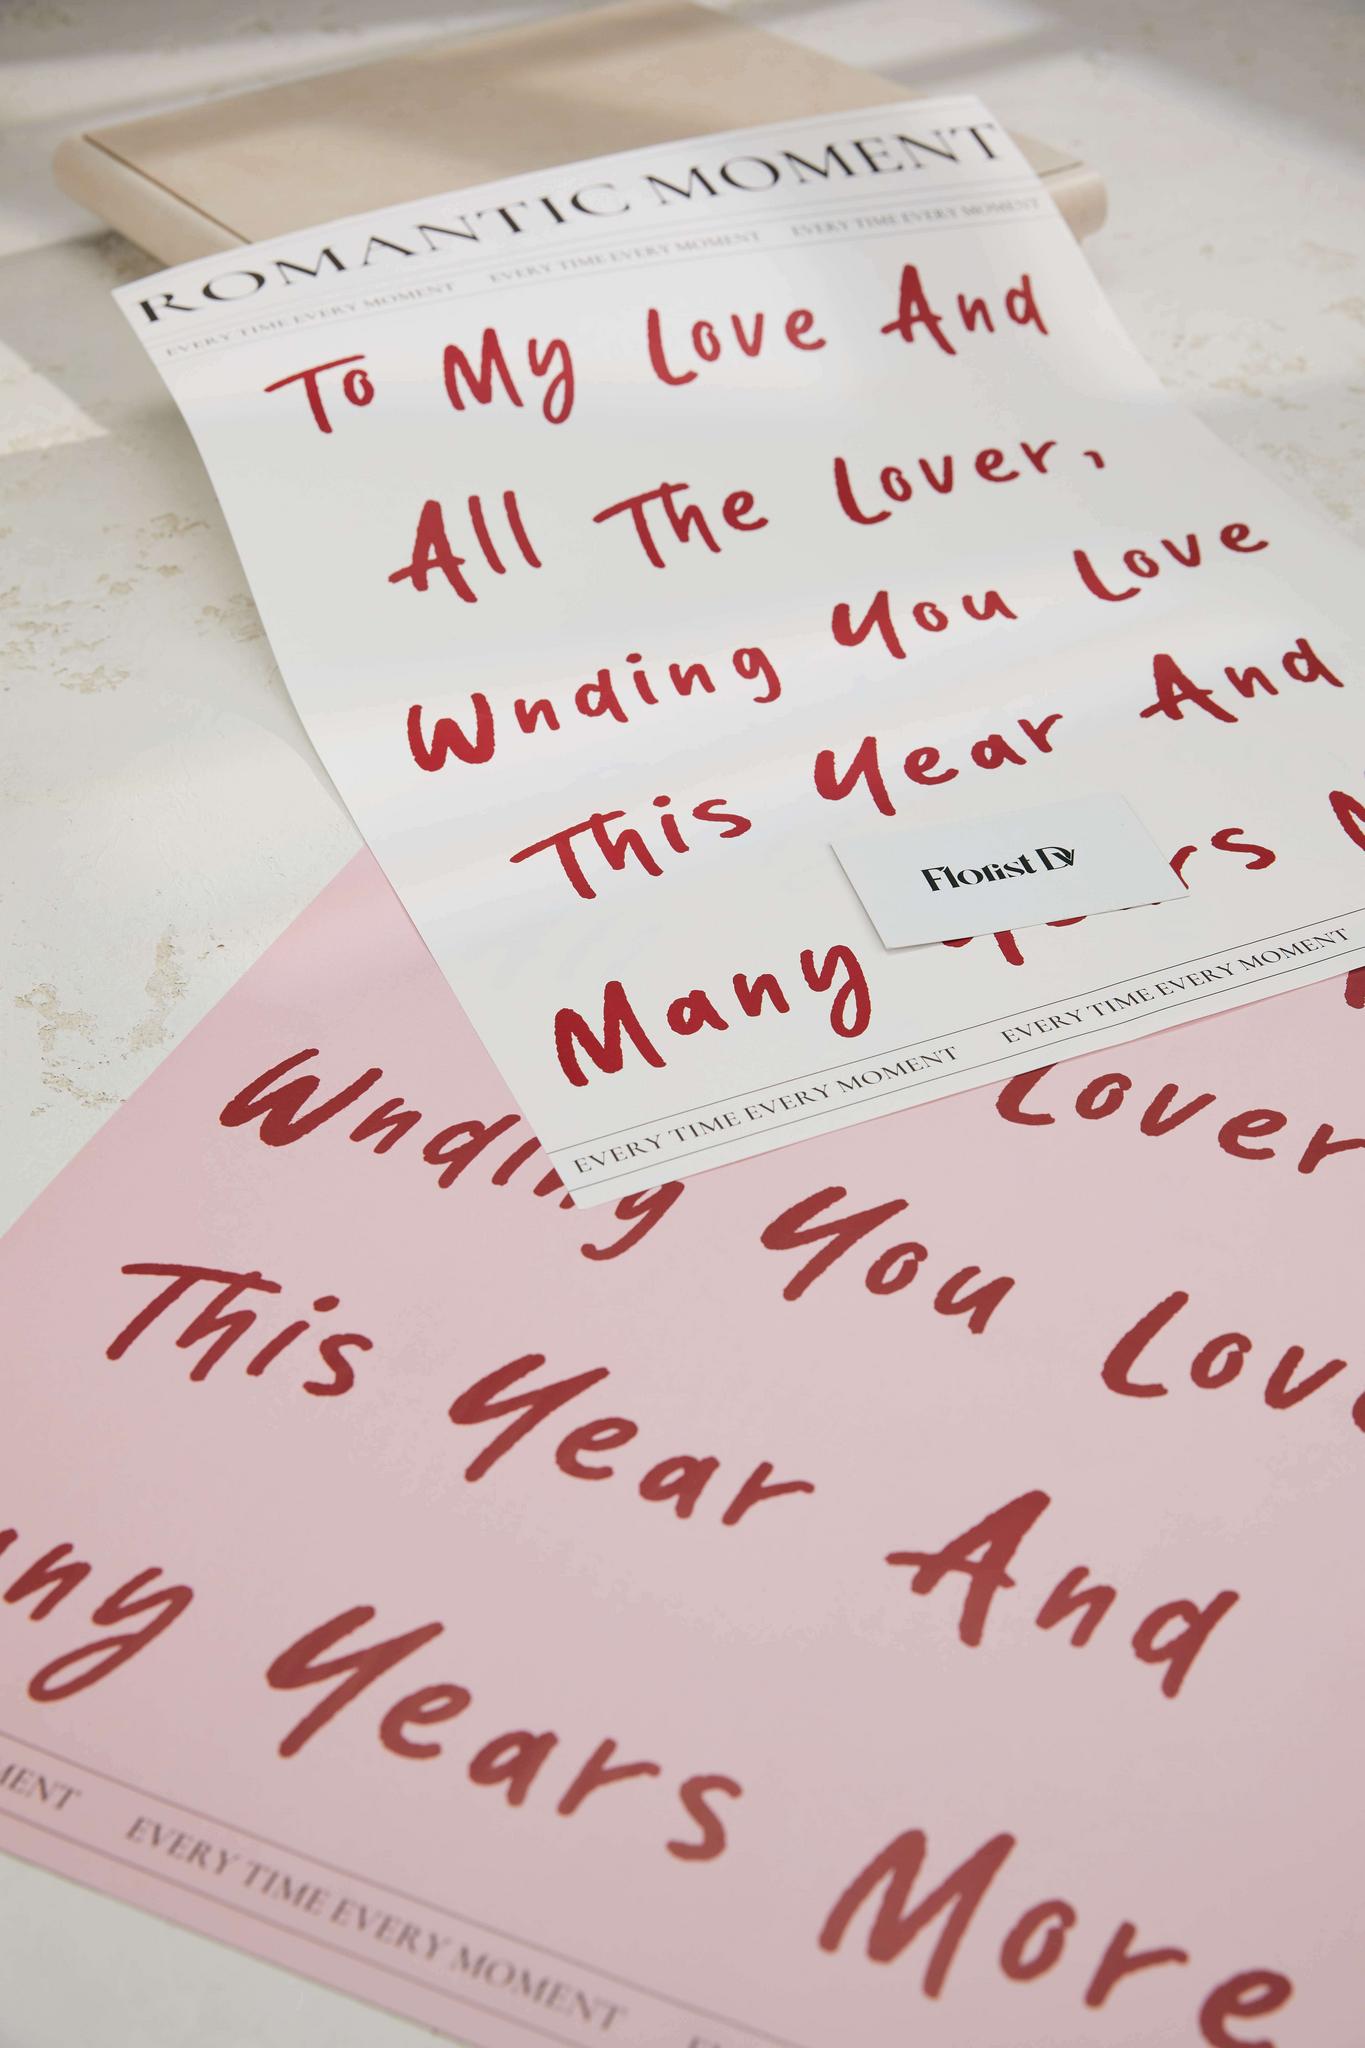 ROMANTIC MOMENT
EVERY TIME EVERY MOMENT EVERY TIME EVERY MOMENT EVERY TIME EVERY MOMENT
To My Love And
All The Lover,
Wnding You Love
This Year And
Many Years
Florist Dv
EVERY TIME EVERY MOMENT EVERY TIME EVERY MOMENT
Lover
Wnding You Love
This Year And
Many Years More
MENT EVERY TIME EVERY MOMENT